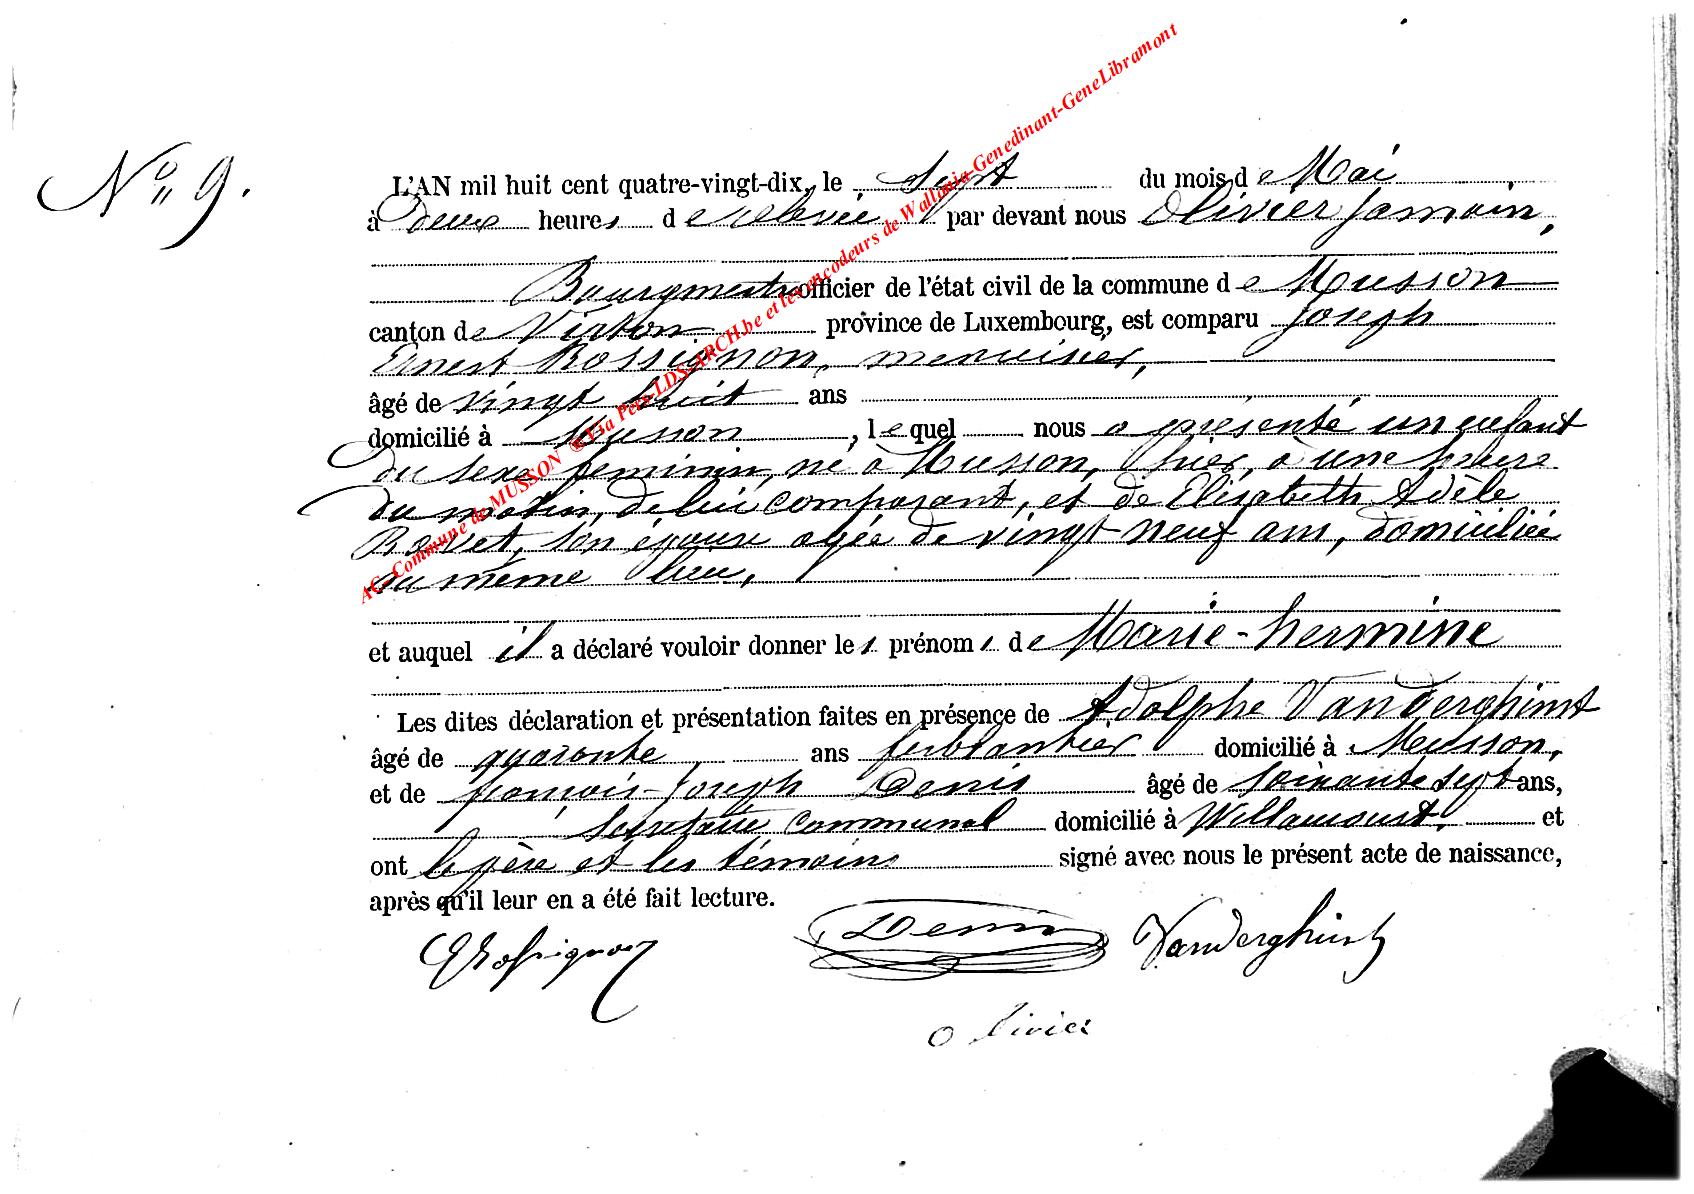 N° 9.
L'AN mil huit cent quatre-vingt-dix, le sept du mois de Mai
à Deux heures de relevée par devant nous Olivier Jamain,
Bourgmestre officier de l'état civil de la commune de Musson
canton de Virton province de Luxembourg, est comparu Joseph
Ernest Rossignon, menuisier,
âgé de vingt huit ans
domicilié à Musson, lequel nous a présenté un enfant
du sexe feminin, né à Musson, hier, à une heure
du matin, de lui comparant, et de Elisabeth Adèle
son épouse agée de vingt-neuf ans, domiciliée
au même lieu,
et auquel il a déclaré vouloir donner les prénoms de Marie-hermine
Les dites déclaration et présentation faites en présence de Adolphe Vanderghinst
âgé de quarante ans ferblantier domicilié à Musson,
et de françois-Joseph Denis âgé de soixante sept ans,
secretaire communal domicilié à Willancourt, et
ont le père et les témoins signé avec nous le présent acte de naissance,
après qu'il leur en a été fait lecture.
ERossignon Denis Vanderghinst
Olivier
AG. Commune de MUSSON @ Via Pers-LDS-ARCH.be et les encodeurs de Wallonia-Genedinant-GeneLibramont